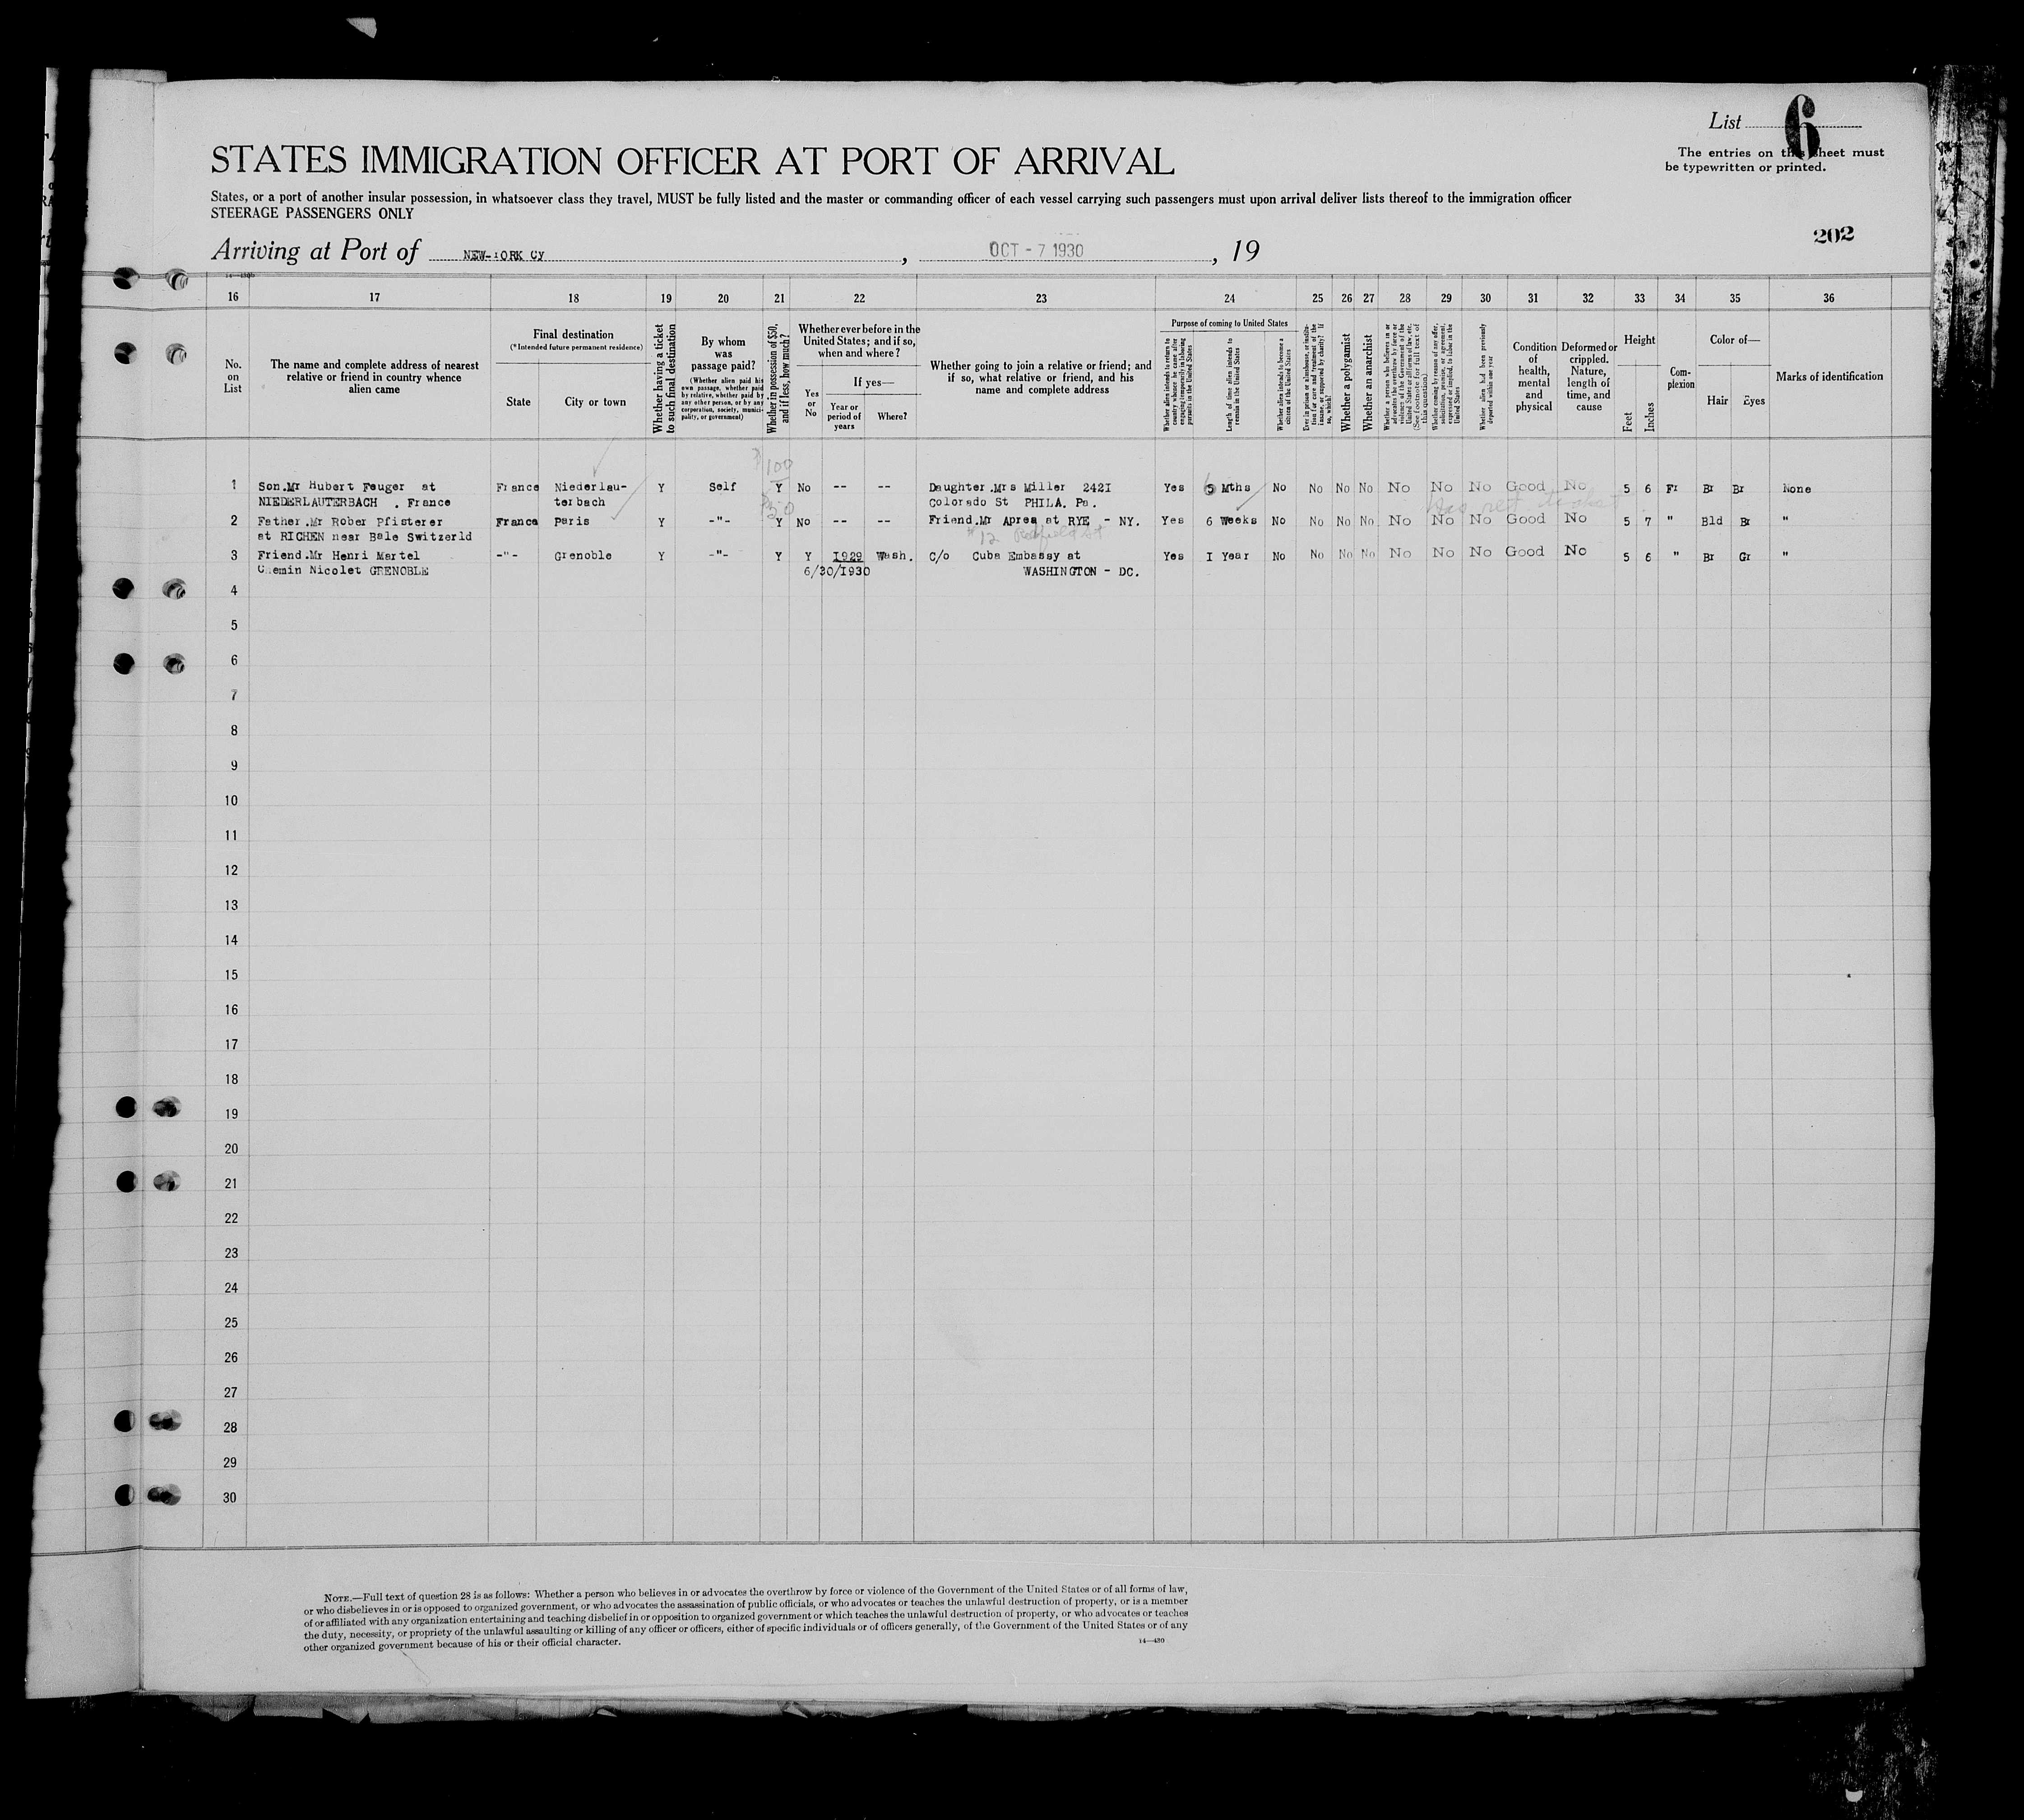 List 6
The entries on this sheet must
be typewritten or printed.
STATES IMMIGRATION OFFICER AT PORT OF ARRIVAL
States, or a port of another insular possession, in whatsoever class they travel, MUST be fully listed and the master or commanding officer of each vessel carrying such passengers must upon arrival deliver lists thereof to the immigration officer
STEERAGE PASSENGERS ONLY
202
Arriving at Port of NEW-YORK Cy , OCT - 7 1930 , 19
16 17 18 19 20 21 22 23 24 25 26 27 28 29 30 31 32 33 34 35 36
No.
on
List
The name and complete address of nearest
relative or friend in country whence
alien came
Final destination
(*Intended future permanent residence)
State City or town
Whether having a ticket
to such final destination
By whom
was
passage paid?
(Whether alien paid his
own passage, whether paid
by relative, whether paid by
any other person, or by any
corporation, society, munici-
pality, or government)
Whether in possession of $50,
and if less, how much?
Whether ever before in the
United States; and if so,
when and where?
Yes
or
No
If yes—
Year or
period of
years
Where?
Whether going to join a relative or friend; and
if so, what relative or friend, and his
name and complete address
Purpose of coming to United States
Whether alien intends to return to
country whence he came after
engaging temporarily in laboring
pursuits in the United States
Length of time alien intends to
remain in the United States
Whether alien intends to become a
citizen of the United States
Ever in prison or almshouse, or institu-
tion for care and treatment of the
insane, or supported by charity? If
so, which?
Whether a polygamist
Whether an anarchist
Whether a person who believes in or
advocates the overthrow by force or
violence of the Government of the
United States or all forms of law, etc.
(See footnote for full text of
this question.)
Whether coming by reason of any offer,
solicitation, promise, or agreement,
expressed or implied, to labor in the
United States
Whether alien had been previously
deported within one year
Condition
of
health,
mental
and
physical
Deformed or
crippled.
Nature,
length of
time, and
cause
Height
Feet Inches
Com-
plexion
Color of—
Hair Eyes
Marks of identification
$100
1 Son.Mr Hubert Feuger at France Niederlau- Y Self Y No -- -- Daughter.Mrs Miller 242I Yes 6 Mths No No No No No No No Good No 5 6 Fr Br Br None
NIEDERLAUTERBACH . France terbach $50 Colorado St PHILA. Pa. Has ret ticket
2 Father.Mr Rober Pfisterer France Paris Y -"- Y No -- -- Friend.Mr Aprea at RYE - NY. Yes 6 Weeks No No No No No No No Good No 5 7 " Bld Br "
at RICHEN near Bale Switzerld #12
3 Friend.Mr Henri Martel -"- Grenoble Y -"- Y Y I929 Wash. C/o Cuba Embassy at Yes I Year No No No No No No No Good No 5 6 " Br Gr "
Chemin Nicolet GRENOBLE 6/30/1930 WASHINGTON - DC.
4
5
6
7
8
9
10
11
12
13
14
15
16
17
18
19
20
21
22
23
24
25
26
27
28
29
30
NOTE.—Full text of question 28 is as follows: Whether a person who believes in or advocates the overthrow by force or violence of the Government of the United States or of all forms of law,
or who disbelieves in or is opposed to organized government, or who advocates the assassination of public officials, or who advocates or teaches the unlawful destruction of property, or is a member
of or affiliated with any organization entertaining and teaching disbelief in or opposition to organized government or which teaches the unlawful destruction of property, or who advocates or teaches
the duty, necessity, or propriety of the unlawful assaulting or killing of any officer or officers, either of specific individuals or of officers generally, of the Government of the United States or of any
other organized government because of his or their official character.
14—430